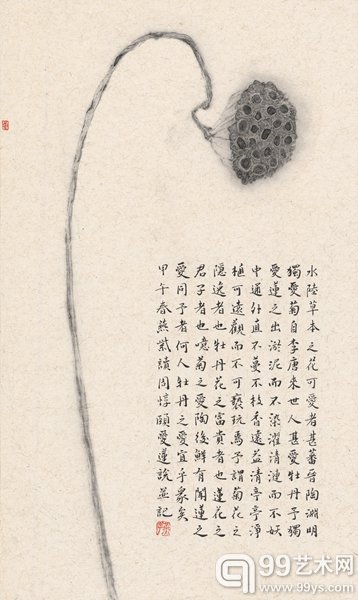 水陸草本之花可愛者甚蕃晉陶淵明
獨愛菊自李唐來世人甚愛牡丹予獨
愛蓮之出淤泥而不染濯清漣而不妖
中通外直不蔓不枝香遠益清亭亭淨
植可遠觀而不可褻玩焉予謂菊花之
隱逸者也牡丹花之富貴者也蓮花之
君子者也噫菊之愛陶後鮮有聞蓮之
愛同予者何人牡丹之愛宜乎衆矣
甲午春燕紫讀周惇頤愛蓮說並記
99艺术网
www.99ys.com